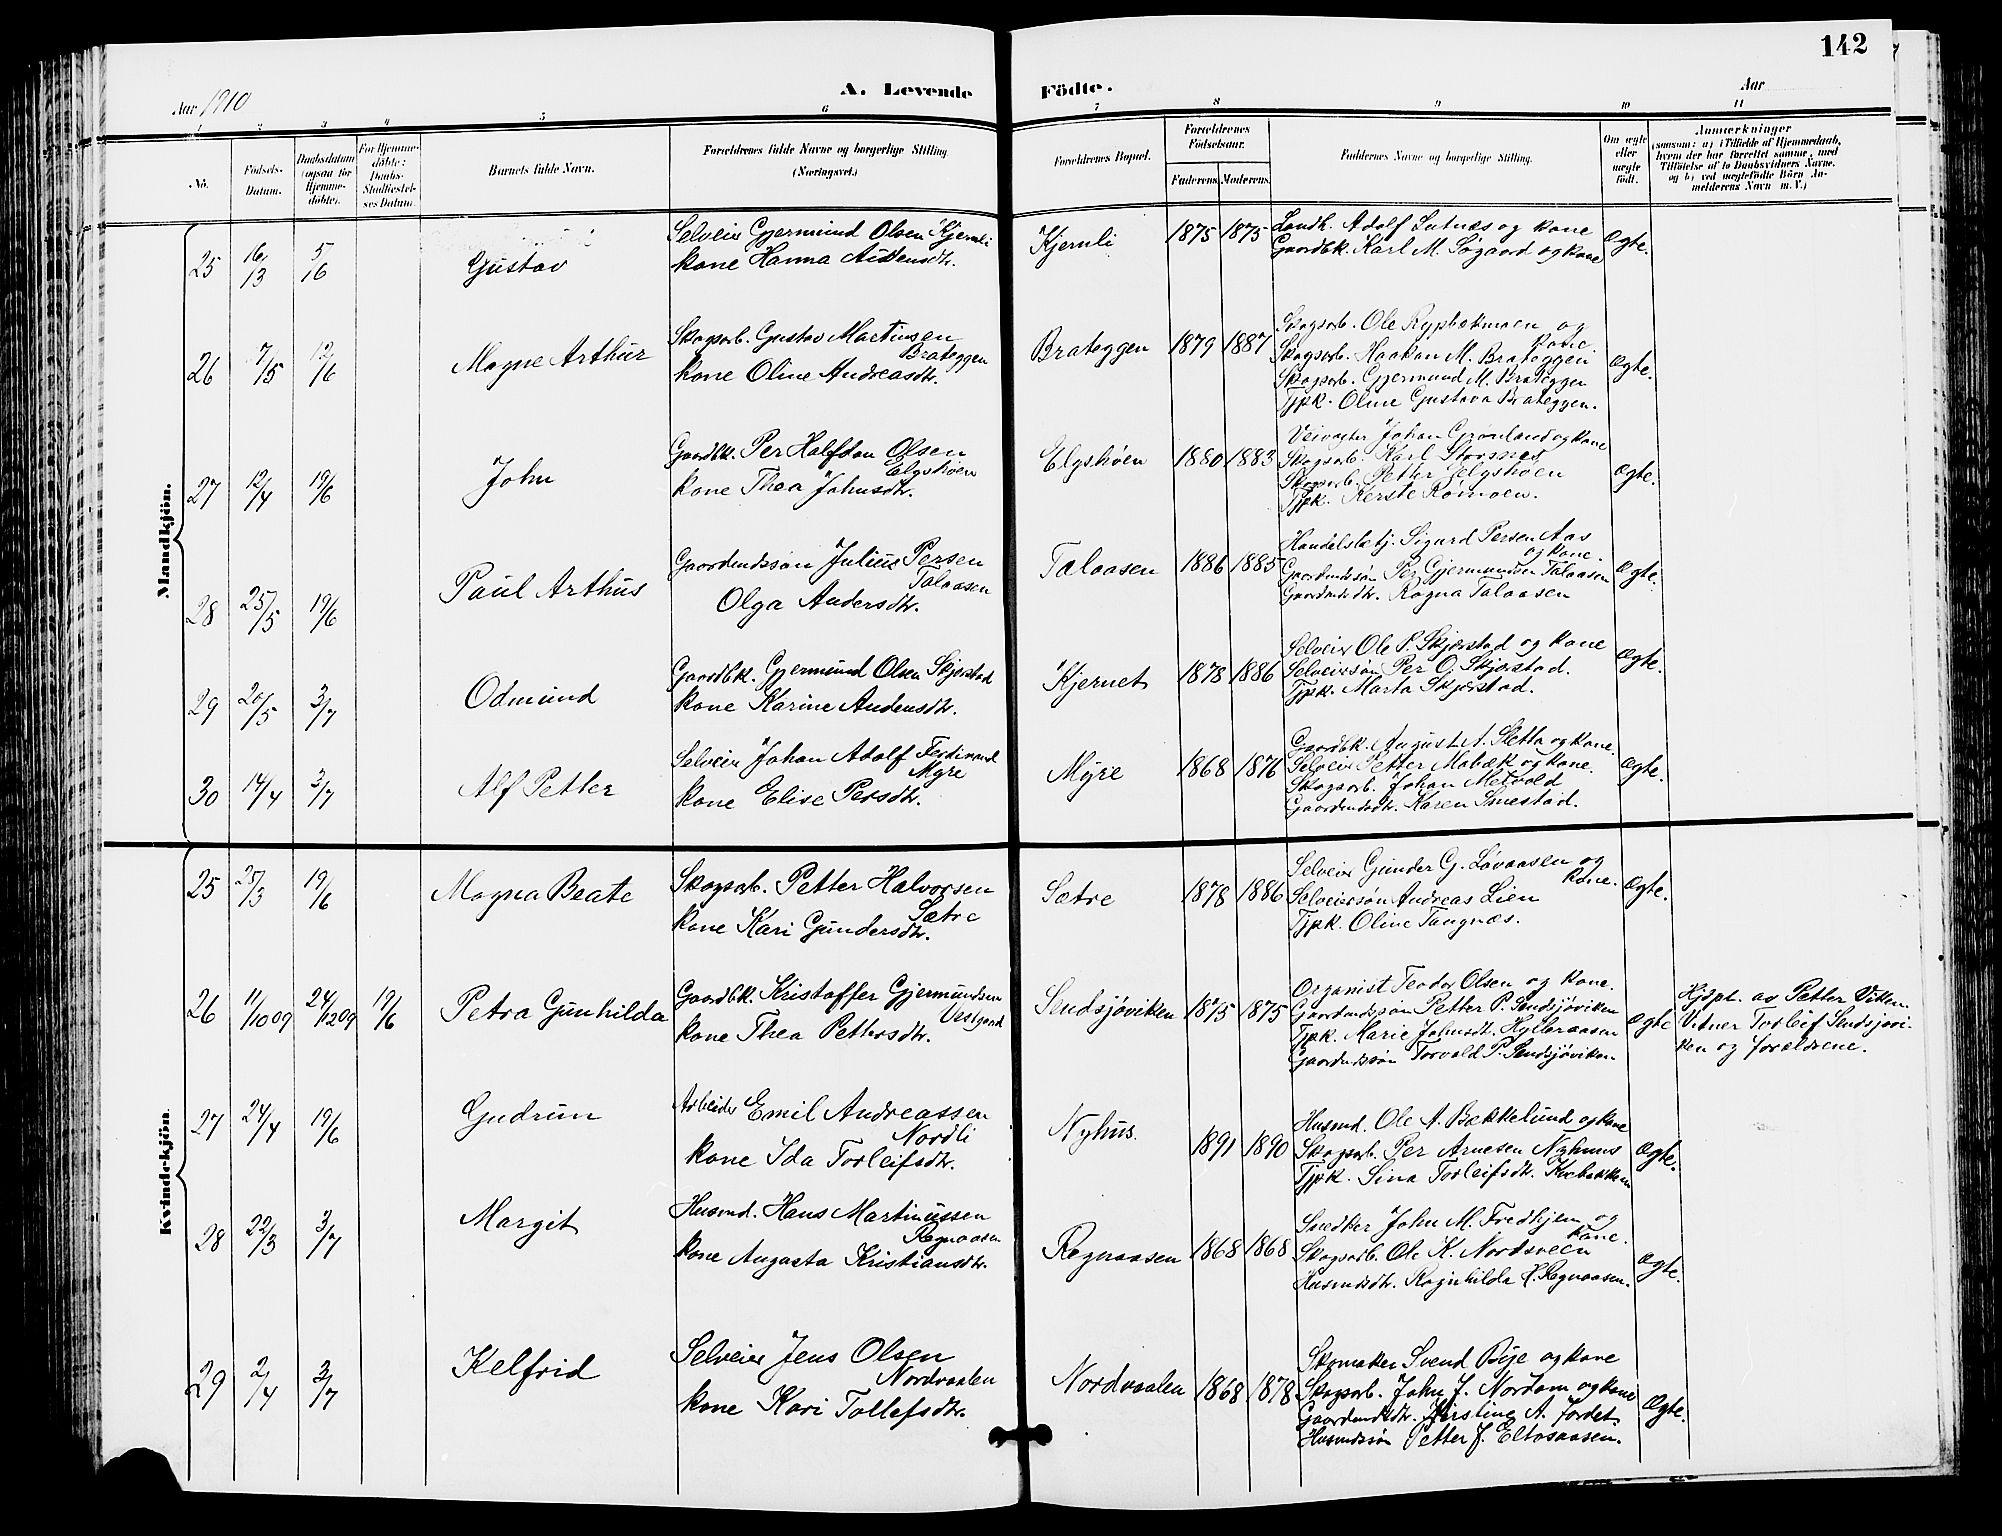 142
Aar 1910
A. Levende
Födte.
Aar
1 2 3 4 5 6 7 8 9 10 11
No.
Födsels-
Datum.
Daabsdatum
(ogsaa for
Hjemme-
döbte).
For Hjemme-
döbte:
Daabs-
Stadfæstel-
ses Datum.
Barnets fulde Navn.
Forældrenes fulde Navne og borgerlige Stilling
(Næringsvei.)
Forældrenes Bopæl.
Forældrenes
Födselsaar.
Faderens. Moderens.
Faddernes Navne og borgerlige Stilling.
Om ægte
eller
uægte
födt.
Anmærkninger
(saasom: a) i Tilfælde af Hjemmedaab,
hvem der har forrettet samme, med
Tilföielse af to Daabsvidners Navne,
og b) ved uægtefödte Börn An-
melderens Navn m. V.)
Mandkjön.
25 16/3 5/6 Gustav
Selveier Gjermund Olsen Kjernli
kone Hanna Audensdtr.
Kjernli 1875 1875
Landh. Adolf Lutnæs og kone
Gaardbk. Karl M. Søgaard og kone
Ægte.
26 7/5 12/6 Magne Arthur
Skogsarb. Gustav Martinsen
Brateggen
kone Oline Andreasdtr.
Brateggen 1879 1887
Skogsarb. Ole Rypbekmoen og
kone
Skogsarb. Haakan M. Brateggen
Skogsarb. Gjermund M. Brateggen
Tjpk. Oline Gustava Brateggen.
Ægte.
27 12/4 19/6 John
Gaardbk. Per Halfdan Olsen
Elgshøen
kone Thea Johnsdtr.
Elgshöen 1880 1883
Veivogter Johan Grønland og kone
Skogsarb. Karl Storsnes
Skogsarb. Petter Elgshöen
Tjpk. Kerste Romoen.
Ægte.
28 25/5 19/6 Paul Arthur
Gaardmdssön Julius Persen
Talaasen
Olga Andersdtr.
Talaasen 1886 1885
Handelsbetj. Sigurd Persen Aas
og kone.
Gaardmdssön Per Gjermundsen Talaasen
Gaardmdsdtr. Ragna Talaasen
Ægte.
29 20/5 3/7 Odmund
Gaardbk. Gjermund Olsen Skjærstad
kone Karine Audensdtr.
Kjernet 1878 1886
Selveier Ole P. Skjærstad og kone
Selveiersøn Per O. Skjærstad.
Tjpk. Marta Skjærstad.
Ægte.
30 14/4 3/7 Alf Petter
Selveier Johan Adolf Ferdinand
Myre
kone Elise Persdtr.
Myre 1868 1876
Gaardbk. August A. Sletta og kone.
Selveier Petter Mobæk og kone.
Skogsarb. Johan Metvold
Gaardmdsdtr. Karen Smestad.
Ægte.
Kvindekjön.
25 25/3 19/6 Magna Beate
Skogsarb. Petter Halvorsen
Sætre
kone Kari Gundersdtr.
Sætre 1878 1886
Selveier Gunder G. Lövaasen og
kone.
Selveiersön Andreas Lien
Tjpk. Oline Tangnæs.
Ægte.
26 11/10 09 24/12 09 19/6 Petra Gunhilda
Gaardbk. Kristoffer Gjermundsen
Vestgaard
kone Thea Pettersdtr.
Sendsjöviken 1875 1875
Organist Teodor Olsen og kone.
Gaardmdssön Petter P. Sendsjöviken
Tjpk. Marie Johnsdtr. Hylleraasen
Gaardmdssön Torvald P. Sendsjöviken
Ægte
Hjdpt. av Petter Viken.
Vitner Torleif Sendsjøvi-
ken og forældrene.
27 24/4 19/6 Gudrun
Arbeider Emil Andreassen
Nordli
kone Ida Torleifsdtr.
Nyhus. 1891 1890
Husmd. Ole A. Bækkelund og kone
Skogsarb. Per Arnesen Nyhuus
Tjpk. Sina Torleifsdtr.
Ægte.
28 22/3 3/7 Margit
Husmd. Hans Martinussen
Regnaasen
kone Augusta Kristiansdtr.
Regnaasen 1868 1868
Snedker John M. Fredhjem og
kone.
Skogsarb. Ole K. Nordsveen
Husmdsdtr. Ragnhilda H. Regnaasen.
Ægte.
29 2/4 3/7 Kelfrid
Selveier Jens Olsen
Nordvaalen
kone Kari Tollefsdtr.
Nordvaalen 1868 1878
Skomaker Svend Bye og kone
Skogsarb. John J. Nordam og kone
Gaardmdsdtr. Kirstine A. Jordet.
Husmdssön Petter J. Eltosaasen.
Ægte.